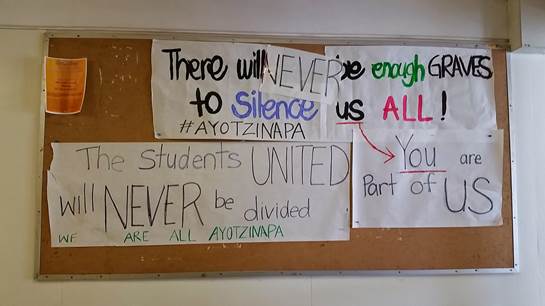 There will NEVER be enough GRAVES
to Silence us ALL!
#AYOTZINAPA
The Students UNITED
will NEVER be divided
WE ARE ALL AYOTZINAPA
You are
Part of US